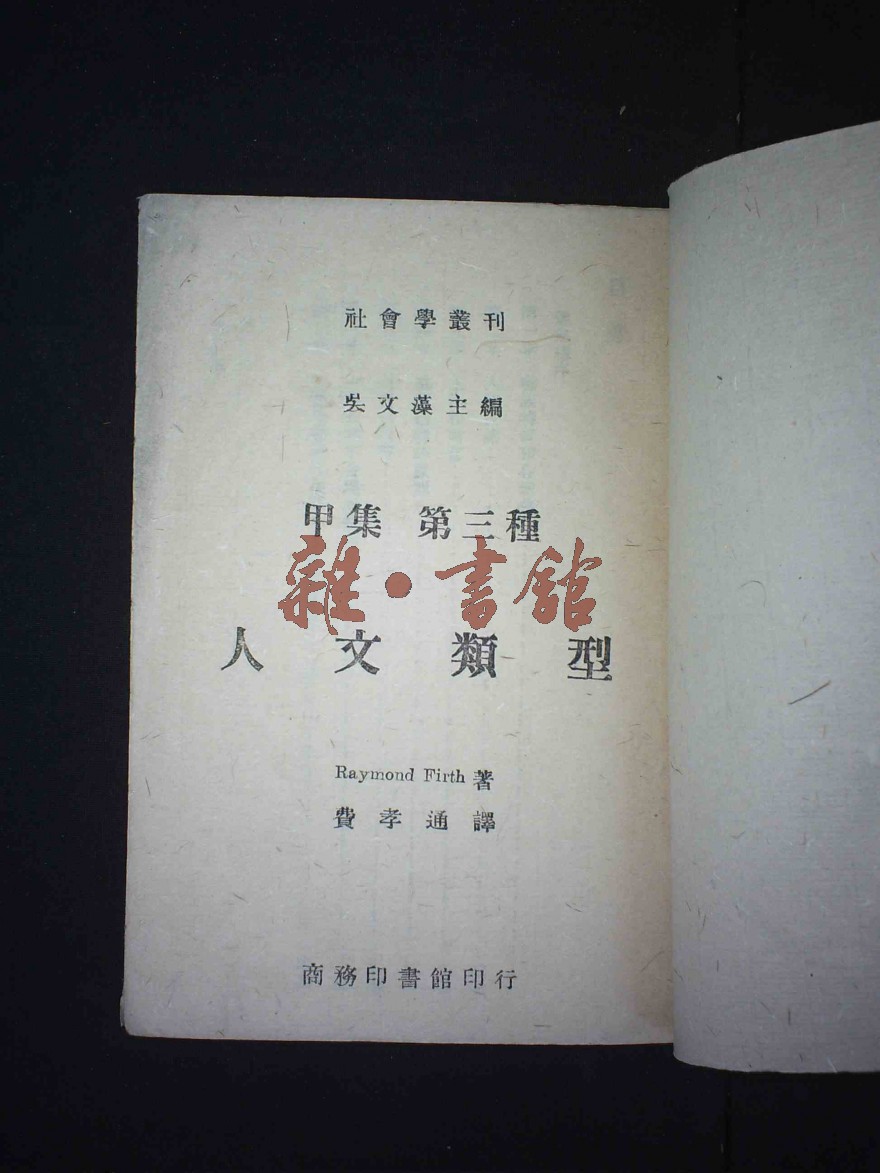 社會學叢刊
吳文藻主編
甲集 第三種
雜·書館
人文類型
Raymond Firth 著
費孝通譯
商務印書館印行